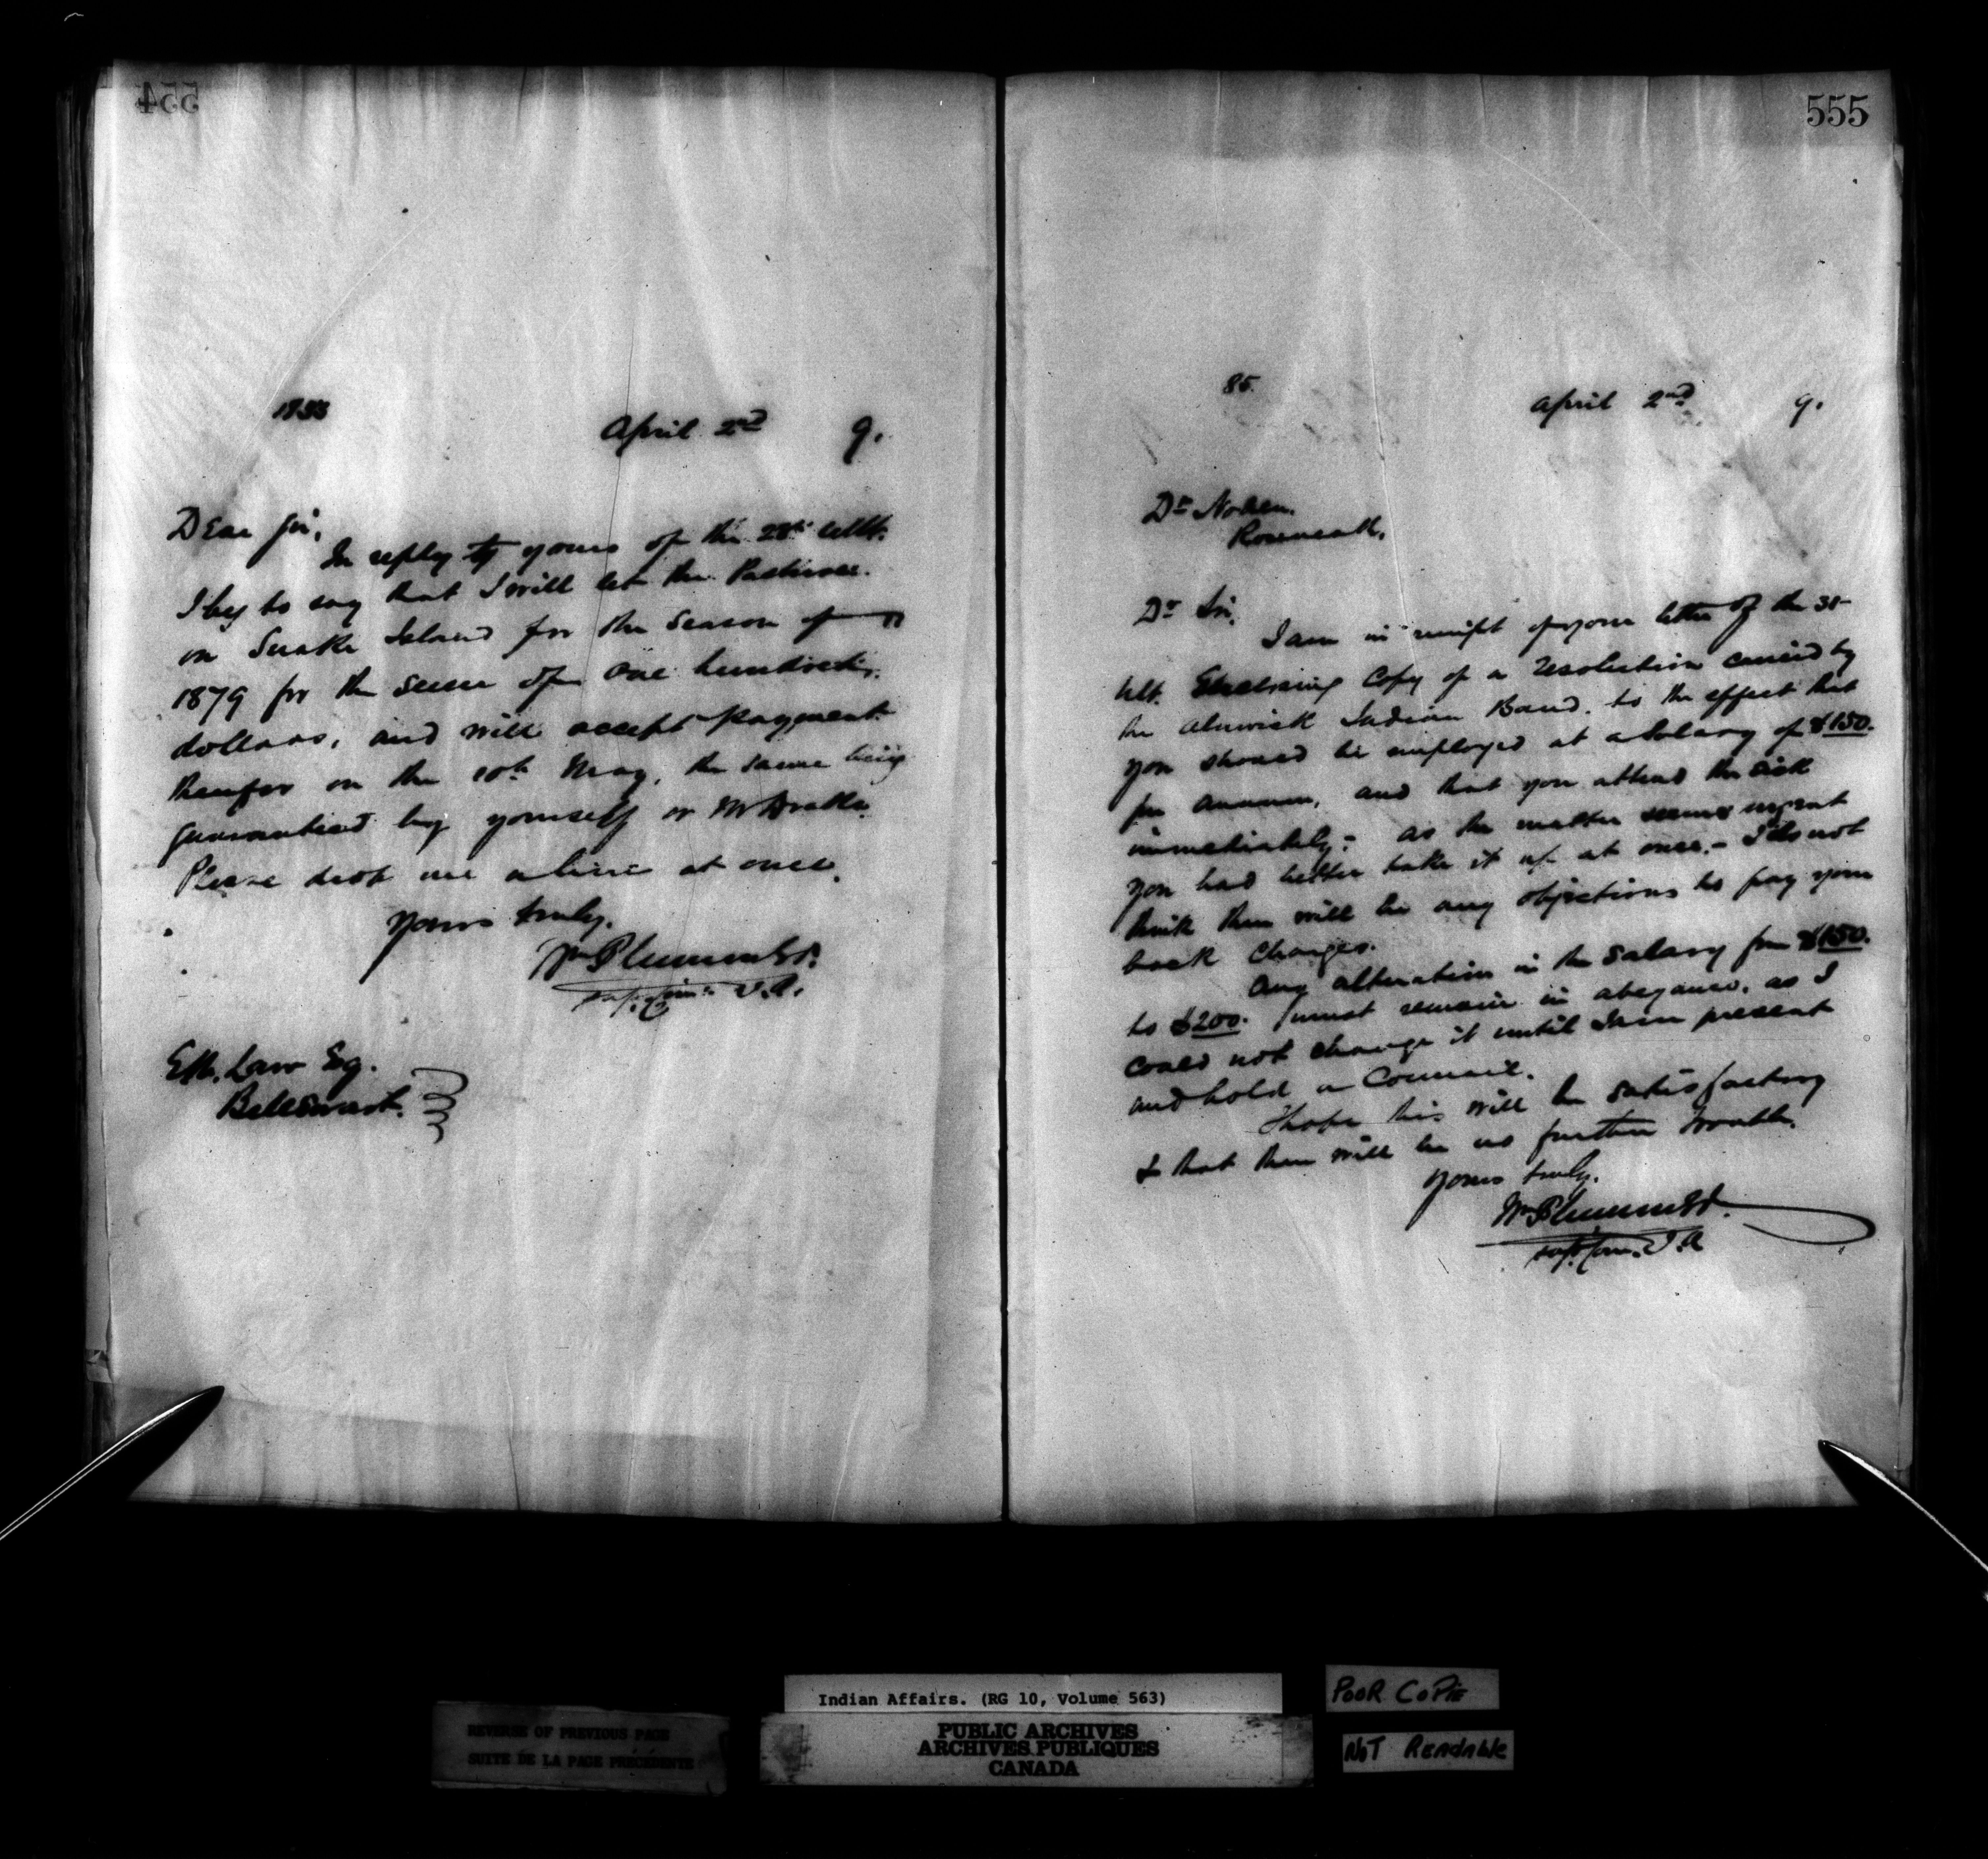 554
1853
April 2nd 9.
Dear Sir,
In reply to yours of the 28th ult.
I beg to say that I will let the Pasturage
on Snake Island for the Season of
1879 for the sum of one hundred
dollars, and will accept payment
therefor on the 10th May, the same being
guaranteed by yourself or Mr Drake.
Please drop me a line at once.
Yours truly,
Wm Plummer
Supt. Com. I.A.
Law Esq.
Belleewart.
555
85.
April 2nd 9.
Dr
Roseneath.
Dr Sir,
I am in receipt of your letter of the 31
ult. Enclosing Copy of a resolution carried by
the Alnwick Indian Band, to the effect that
you should be employed at a Salary of $150.
per annum, and that you attend the sick
immediately; as the matter seems urgent
you had better take it up at once. - I do not
think there will be any objections to pay your
back charges.
Any alteration in the salary from $150.
to $200. must remain in abeyance, as I
could not change it until I am present
and hold a Council.
I hope this will be satisfactory
& that there will be no further trouble.
Yours truly,
Wm Plummer
Supt. Com. I.A
Indian Affairs. (RG 10, Volume 563)
PUBLIC ARCHIVES
ARCHIVES PUBLIQUES
CANADA
REVERSE OF PREVIOUS PAGE
SUITE DE LA PAGE PRÉCÉDENTE
POOR COPIE
NOT READABLE